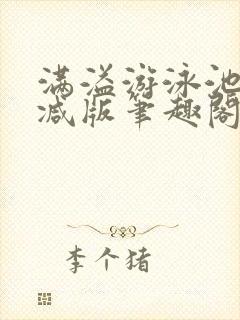 满溢游泳池
减版笔趣阁
李个猪